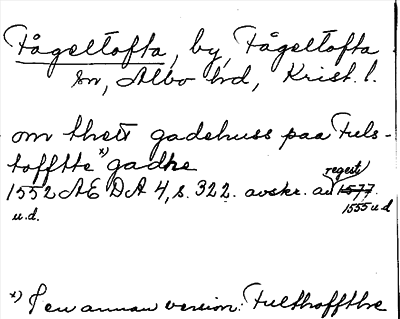 Fågeltofta, by, Fågeltofta
sn, Albo hd, Krist. l.
om thett gadehuss paa Fuls-
tofftte *) gadhe
regest
1552 Æ DA 4, s. 322. avskr. av 1577.
u.d. 1555 u d
*) I en annan version: Fulthoffthe